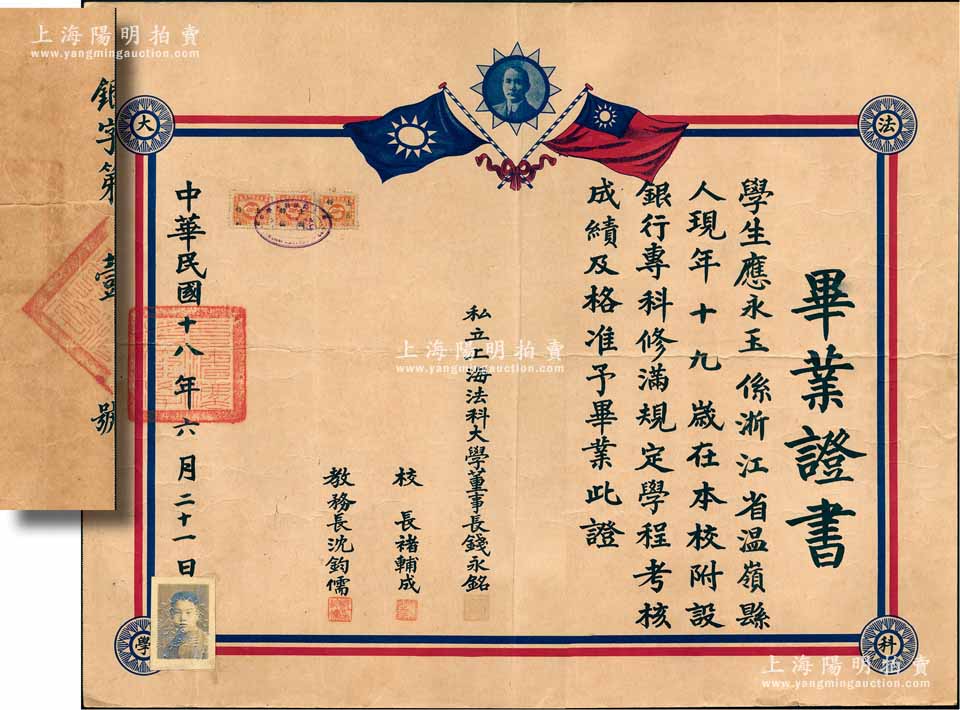 畢業證書
學生應永玉係浙江省溫嶺縣
人現年十九歲在本校附設
銀行專科修滿規定學程考核
成績及格准予畢業此證
私立上海法科大學董事長錢永銘
校長褚輔成
教務長沈鈞儒
中華民國十八年六月二十一日
銀字第壹號
法
科
大
學
上海陽明拍賣
www.yangmingauction.com
上海陽明拍賣
www.yangmingauction.com
上海陽明拍賣
www.yangmingauction.com
上海陽明拍賣
www.yangmingauction.com